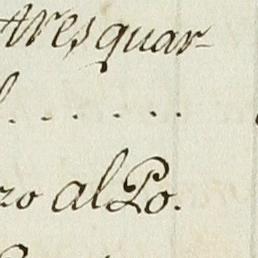 Tres quar-
. . . . . .
zo al Po.